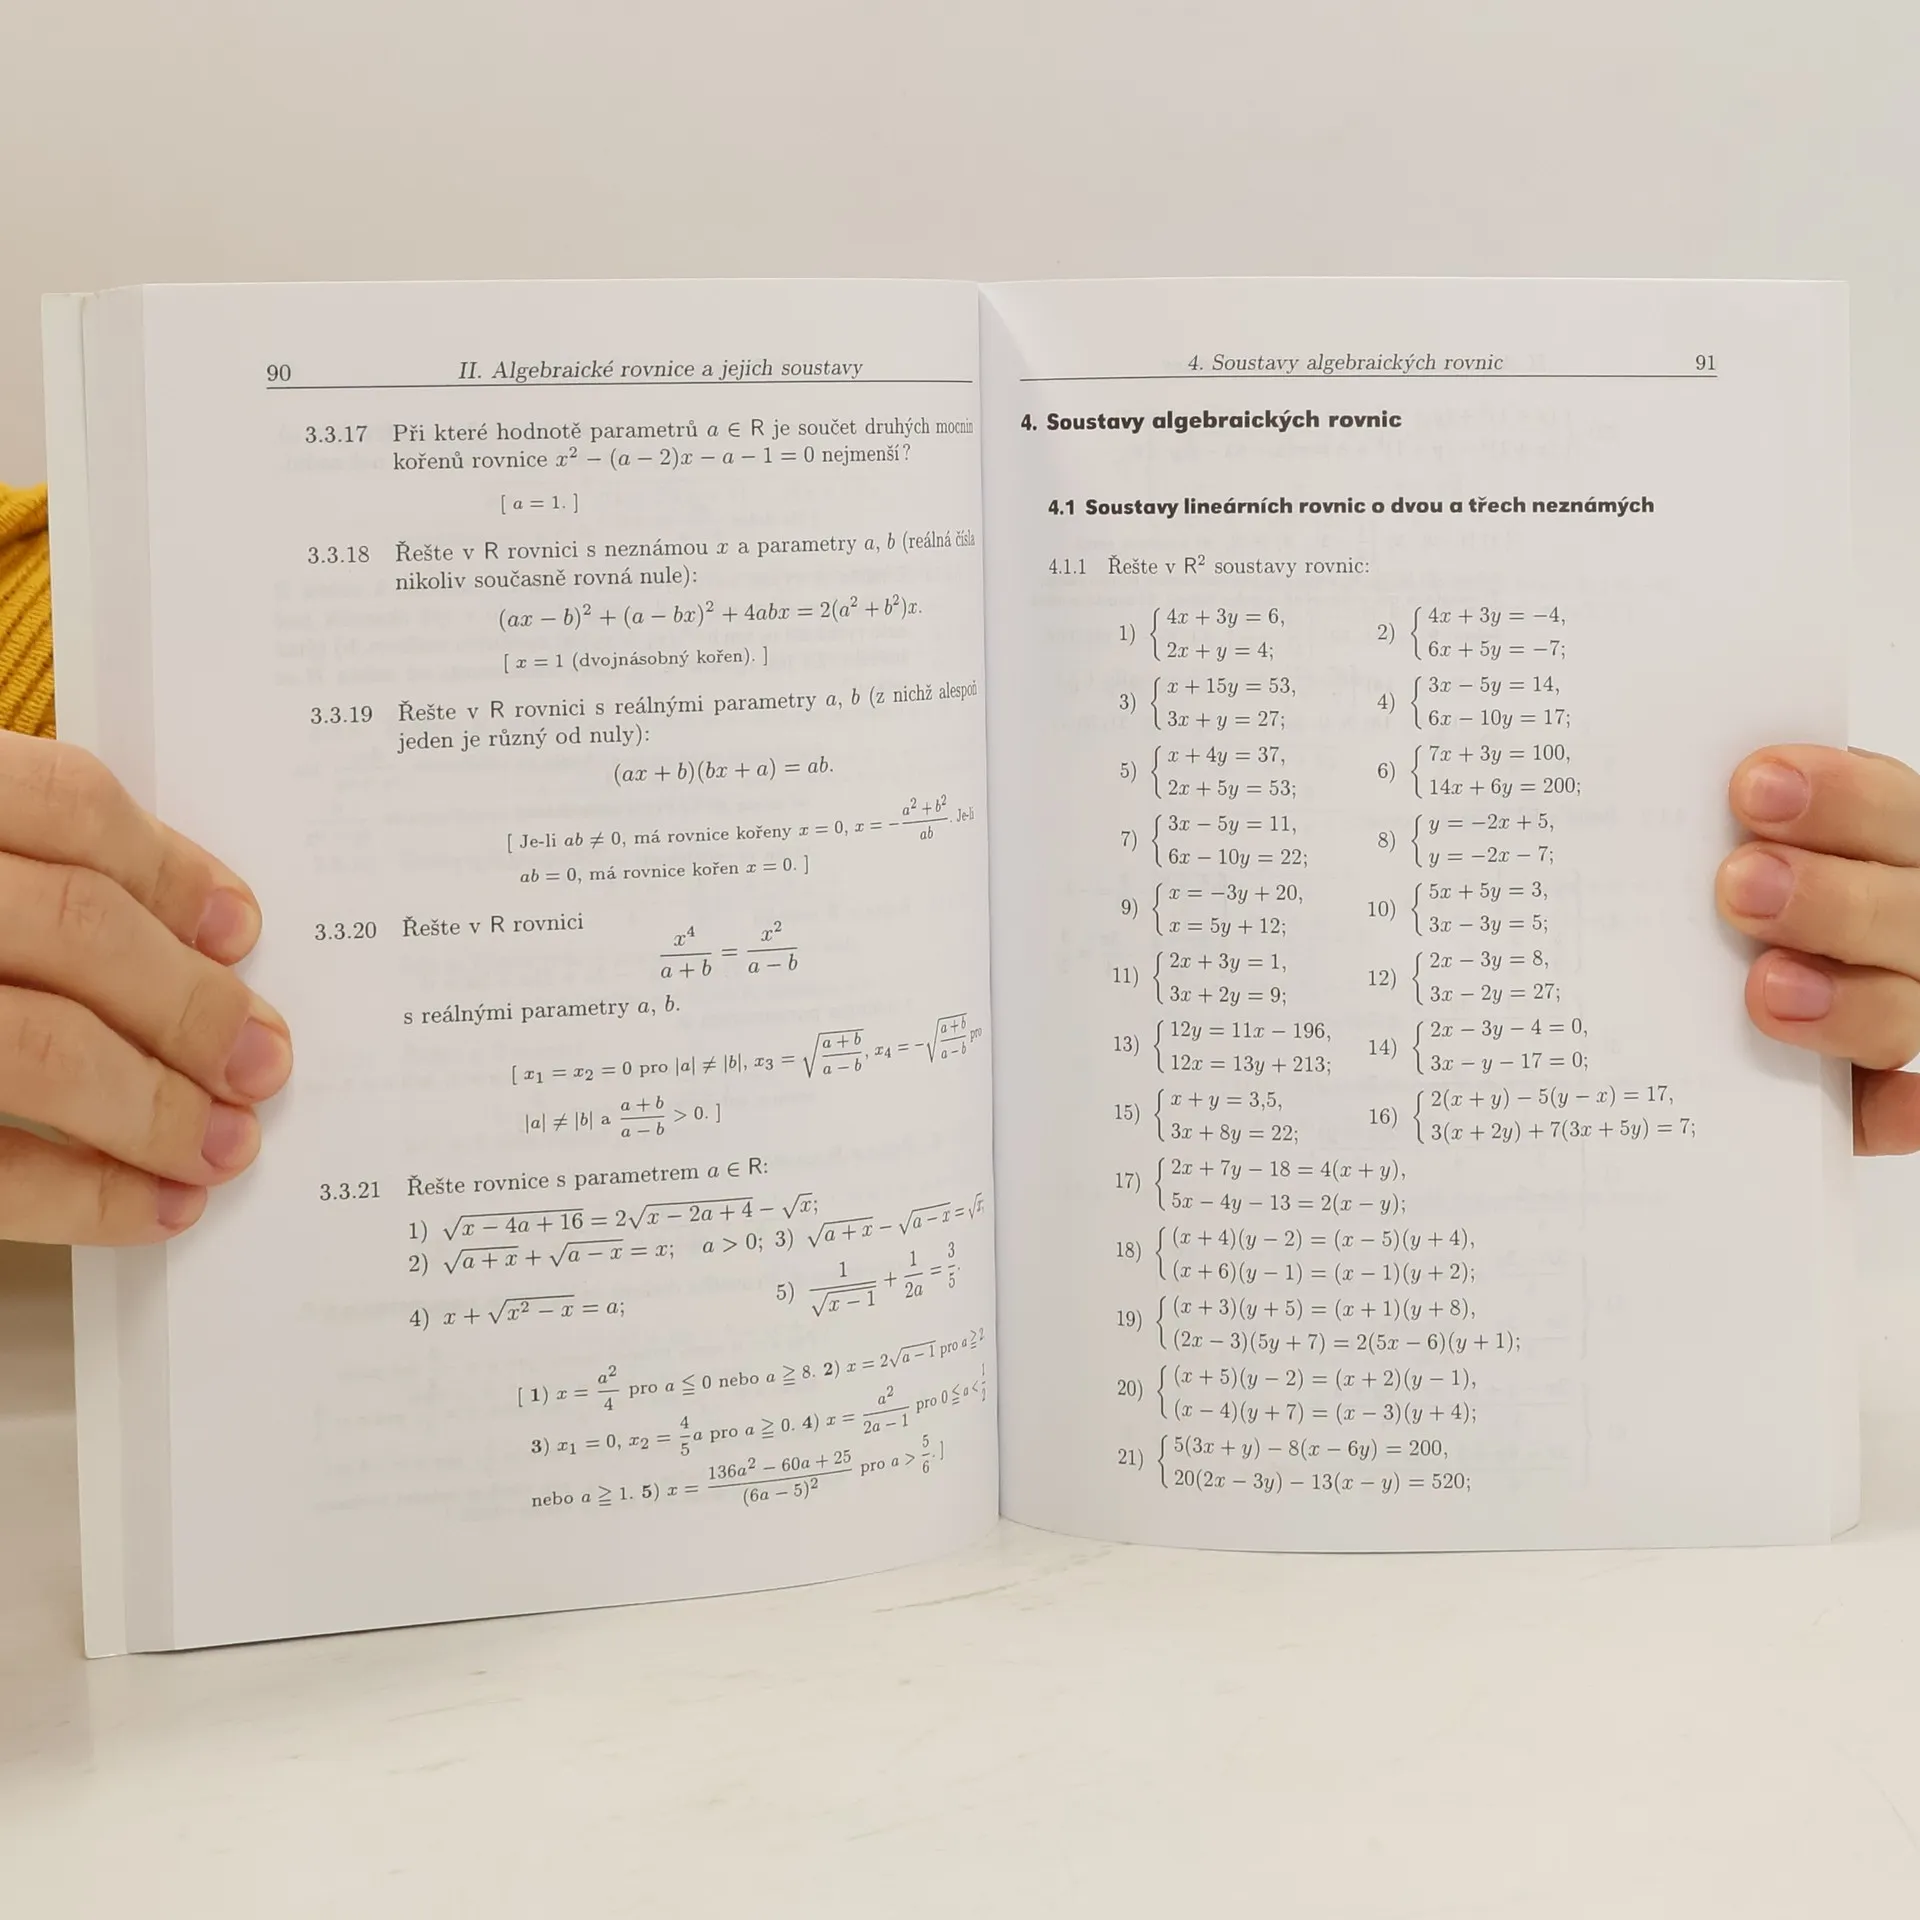 90 II. Algebraické rovnice a jejich soustavy
3.3.17 Při které hodnotě parametrů a ∈ R je součet druhých mocnin
kořenů rovnice x² − (a − 2)x − a − 1 = 0 nejmenší?
[ a = 1. ]
3.3.18 Řešte v R rovnici s neznámou x a parametry a, b (reálná čísla
nikoliv současně rovná nule):
(ax − b)² + (a − bx)² + 4abx = 2(a² + b²)x.
[ x = 1 (dvojnásobný kořen). ]
3.3.19 Řešte v R rovnici s reálnými parametry a, b (z nichž alespoň
jeden je různý od nuly):
(ax + b)(bx + a) = ab.
[ Je-li ab ≠ 0, má rovnice kořeny x = 0, x = −(a² + b²)/ab. Je-li
ab = 0, má rovnice kořen x = 0. ]
3.3.20 Řešte v R rovnici
x⁴/(a + b) = x²/(a − b)
s reálnými parametry a, b.
[ x₁ = x₂ = 0 pro |a| ≠ |b|, x₃ = √((a + b)/(a − b)), x₄ = −√((a + b)/(a − b)) pro
|a| ≠ |b| a (a + b)/(a − b) > 0. ]
3.3.21 Řešte rovnice s parametrem a ∈ R:
1) √(x − 4a + 16) = 2√(x − 2a + 4) − √x;
2) √(a + x) + √(a − x) = x; a > 0; 3) √(a + x) − √(a − x) = √x;
4) x + √(x² − x) = a; 5) 1/√(x − 1) + 1/2a = 3/5.
[ 1) x = a²/4 pro a ≦ 0 nebo a ≧ 8. 2) x = 2√(a − 1) pro a ≧ 2
3) x₁ = 0, x₂ = 4/5 a pro a ≧ 0. 4) x = a²/(2a − 1) pro 0 ≦ a < 1/2
nebo a ≧ 1. 5) x = (136a² − 60a + 25)/(6a − 5)² pro a > 5/6. ]
4. Soustavy algebraických rovnic 91
4. Soustavy algebraických rovnic
4.1 Soustavy lineárních rovnic o dvou a třech neznámých
4.1.1 Řešte v R² soustavy rovnic:
1) { 4x + 3y = 6,
2x + y = 4;
2) { 4x + 3y = −4,
6x + 5y = −7;
3) { x + 15y = 53,
3x + y = 27;
4) { 3x − 5y = 14,
6x − 10y = 17;
5) { x + 4y = 37,
2x + 5y = 53;
6) { 7x + 3y = 100,
14x + 6y = 200;
7) { 3x − 5y = 11,
6x − 10y = 22;
8) { y = −2x + 5,
y = −2x − 7;
9) { x = −3y + 20,
x = 5y + 12;
10) { 5x + 5y = 3,
3x − 3y = 5;
11) { 2x + 3y = 1,
3x + 2y = 9;
12) { 2x − 3y = 8,
3x − 2y = 27;
13) { 12y = 11x − 196,
12x = 13y + 213;
14) { 2x − 3y − 4 = 0,
3x − y − 17 = 0;
15) { x + y = 3,5,
3x + 8y = 22;
16) { 2(x + y) − 5(y − x) = 17,
3(x + 2y) + 7(3x + 5y) = 7;
17) { 2x + 7y − 18 = 4(x + y),
5x − 4y − 13 = 2(x − y);
18) { (x + 4)(y − 2) = (x − 5)(y + 4),
(x + 6)(y − 1) = (x − 1)(y + 2);
19) { (x + 3)(y + 5) = (x + 1)(y + 8),
(2x − 3)(5y + 7) = 2(5x − 6)(y + 1);
20) { (x + 5)(y − 2) = (x + 2)(y − 1),
(x − 4)(y + 7) = (x − 3)(y + 4);
21) { 5(3x + y) − 8(x − 6y) = 200,
20(2x − 3y) − 13(x − y) = 520;